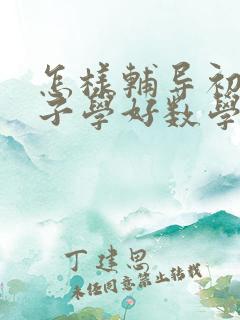 怎样輔导初
子學好数學
丁建思
未经同意禁止转载